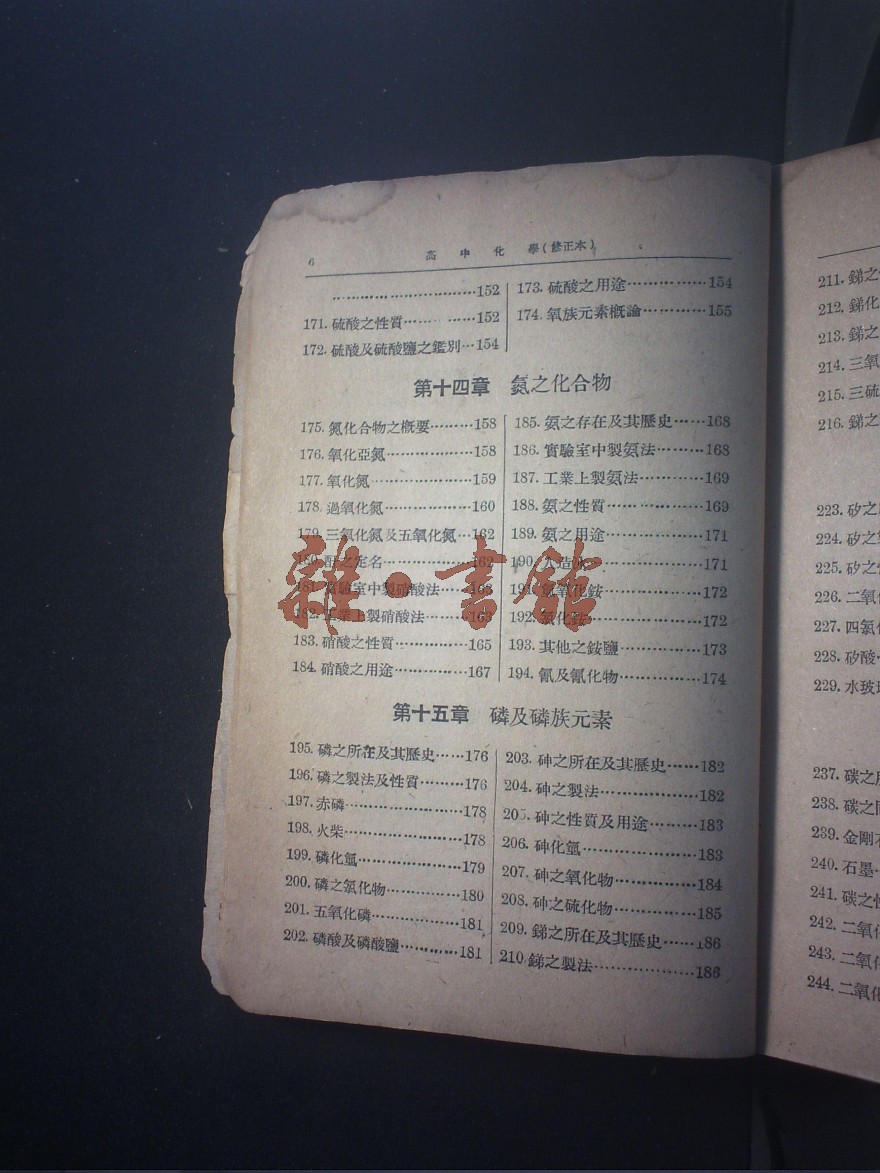 6
高中化學(修正本)
…………………………152
171. 硫酸之性質……… ……152
172. 硫酸及硫酸鹽之鑑別…154
173. 硫酸之用途……………154
174. 氧族元素概論…………155
第十四章 氮之化合物
175. 氮化合物之概要………158
176. 氧化亞氮………………158
177. 氧化氮…………………159
178. 過氧化氮………………160
179. 三氧化氮及五氧化氮…162
之定名…………………162
實驗室中製硝酸法
182. 工業上製硝酸法
183. 硝酸之性質……………165
184. 硝酸之用途……………167
185. 氨之存在及其歷史……168
186. 實驗室中製氨法………168
187. 工業上製氨法…………169
188. 氨之性質………………169
189. 氨之用途………………171
190. …171
氧化銨…172
192. 氯化銨…172
193. 其他之銨鹽……………173
194. 氰及氰化物……………174
第十五章 磷及磷族元素
195. 磷之所在及其歷史……176
196. 磷之製法及性質………176
197. 赤磷……………………178
198. 火柴……………………178
199. 磷化氫…………………179
200. 磷之氯化物……………180
201. 五氧化磷………………181
202. 磷酸及磷酸鹽…………181
203. 砷之所在及其歷史……182
204. 砷之製法………………182
205. 砷之性質及用途………183
206. 砷化氫…………………183
207. 砷之氧化物……………184
208. 砷之硫化物……………185
209. 銻之所在及其歷史……186
210. 銻之製法………………186
211. 銻之
212. 銻化
213. 銻之
214. 三氧
215. 三硫
216. 銻之
223. 矽之
224. 矽之
225. 矽之
226. 二氧
227. 四氯
228. 矽酸
229. 水玻
237. 碳之
238. 碳之
239. 金剛石
240. 石墨
241. 碳之
242. 二氧化
243. 二氧化
244. 二氧化
雜·書館